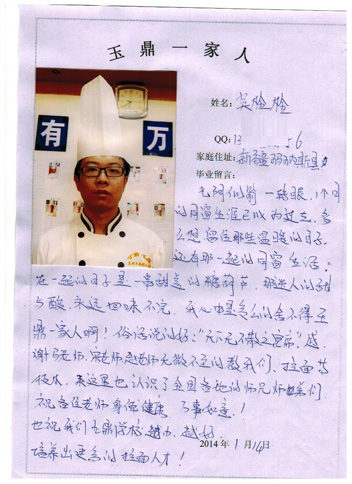 玉鼎一家人
姓名：吴栓栓
有 万
QQ：13 56
家庭住址：新疆玛纳斯县
毕业留言：
光阴似箭 一转眼，1个月
的同窗生涯已成为过去，多
么想留住那些温暖的日子，
还有那一起的同窗生活；
在一起的日子是一串甜美的糖葫芦，那迷人的甜
与酸，永远回味不完，我心中是多么的舍不得玉
鼎一家人啊！俗话说的好：“天下无不散之宴席”感
谢马老师，宋老师，赵老师无微不至的教我们，拉面等
技术，来这里也认识了全国各地的师兄师姐弟们
祝各位老师身体健康 万事如意！
也祝我们玉鼎学校，越办，越好，
培养出更多的拉面人才！
2014年1月14日